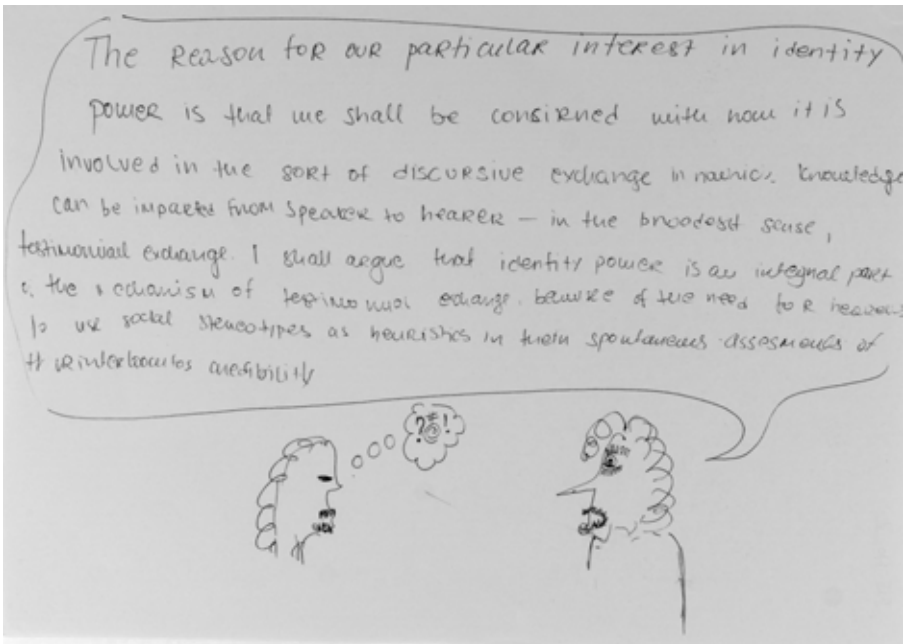 The Reason for our particular interest in identity
power is that we shall be consirned with how it is
involved in the sort of discursive exchange in which knowledge
can be imparted from speaker to hearer — in the broadest sense,
testimonial exchange. I shall argue that identity power is an integral part
the mechanism of testimonial exchange, because of the need for hearers
to use social stereotypes as heuristics in their spontaneous assesments of
interlocutos credibility
?!